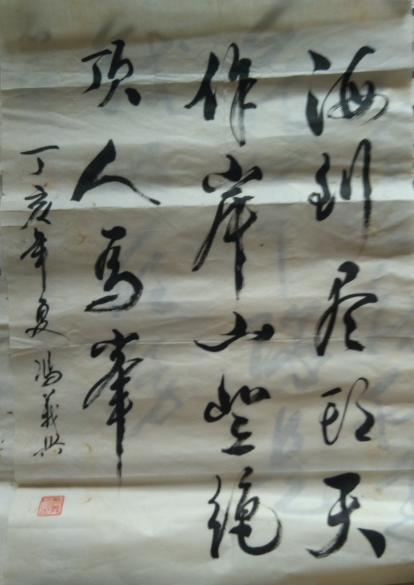 海到尽头天
作岸山登绝
顶人为峯
丁亥年夏冯義兴